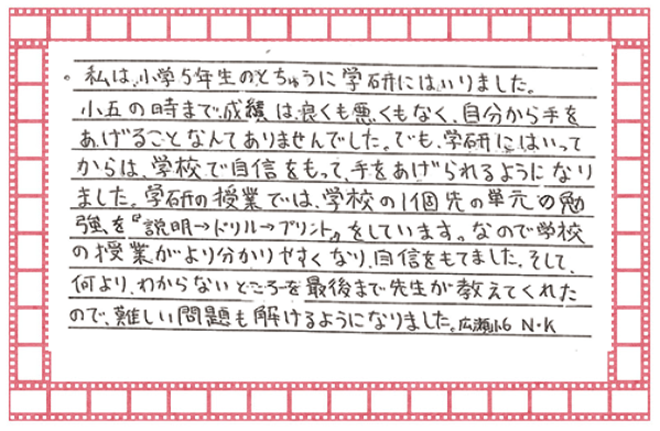 。私は、小学5年生のとちゅうに学研にはいりました。
小五の時まで、成績は、良くも悪くもなく、自分から手を
あげることなんてありませんでした。でも、学研にはいって
からは、学校で自信をもって、手をあげられるようになり
ました。学研の授業では、学校の1個先の単元の勉
強を『説明→ドリル→プリント』をしています。なので学校
の授業がより分かりやすくなり、自信をもてました。そして、
何より、わからないところを最後まで先生が教えてくれた
ので、難しい問題も解けるようになりました。広瀬小6 N・K